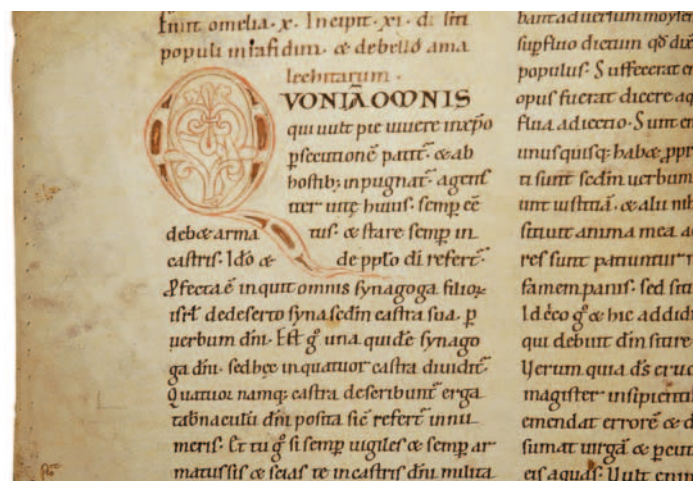 Finit omelia · x · Incipit · xi · de siti
populi in rafidim · & de bello ama
lechitarum ·
QVONIĀ OMNIS
qui uult pie uiuere in xp̄o
ꝑsecutionē patit᷑ · & ab
hostib; inpugnat᷑ · agens
iter uitę huius · semꝑ eē
deb& arma tus · & stare semꝑ in
castris · Idō & de pp̄lo dī refert᷑ ·
ꝓfecta ē inquit omnis synagoga filioꝝ
isrł de deserto syna sedm̄ in castra sua · ꝑ
uerbum dn̄i · Est gͦ una quidē synago
ga dn̄i · sed hęc in quatuor castra diuidit᷑ ·
Quatuor namq; castra describunt᷑ erga
tab̄naculū dn̄i posita sic̄ refert᷑ in nu
meris · Et tu gͦ si semꝑ uigiles & semꝑ ar
matus sis & scias te in castris dn̄i milita
bant aduersum moysen
suꝑfluo dictum qd̄
populus · Suffecerat
opus fuerat dicere
flua adiectio · Sunt
unusquisq; hab&
ti sunt sedm̄ uerbum
unt iustitiā · & alii
sitiuit anima mea
res sunt patiuntur
famem panis · sed
Idcͦco gͦ & hic addidit
qui debuit dn̄m sitire
Uerum quia dс̄
magister insipientiū
emendat errorē &
sumat uirgā &
eis aquas · Uult enim